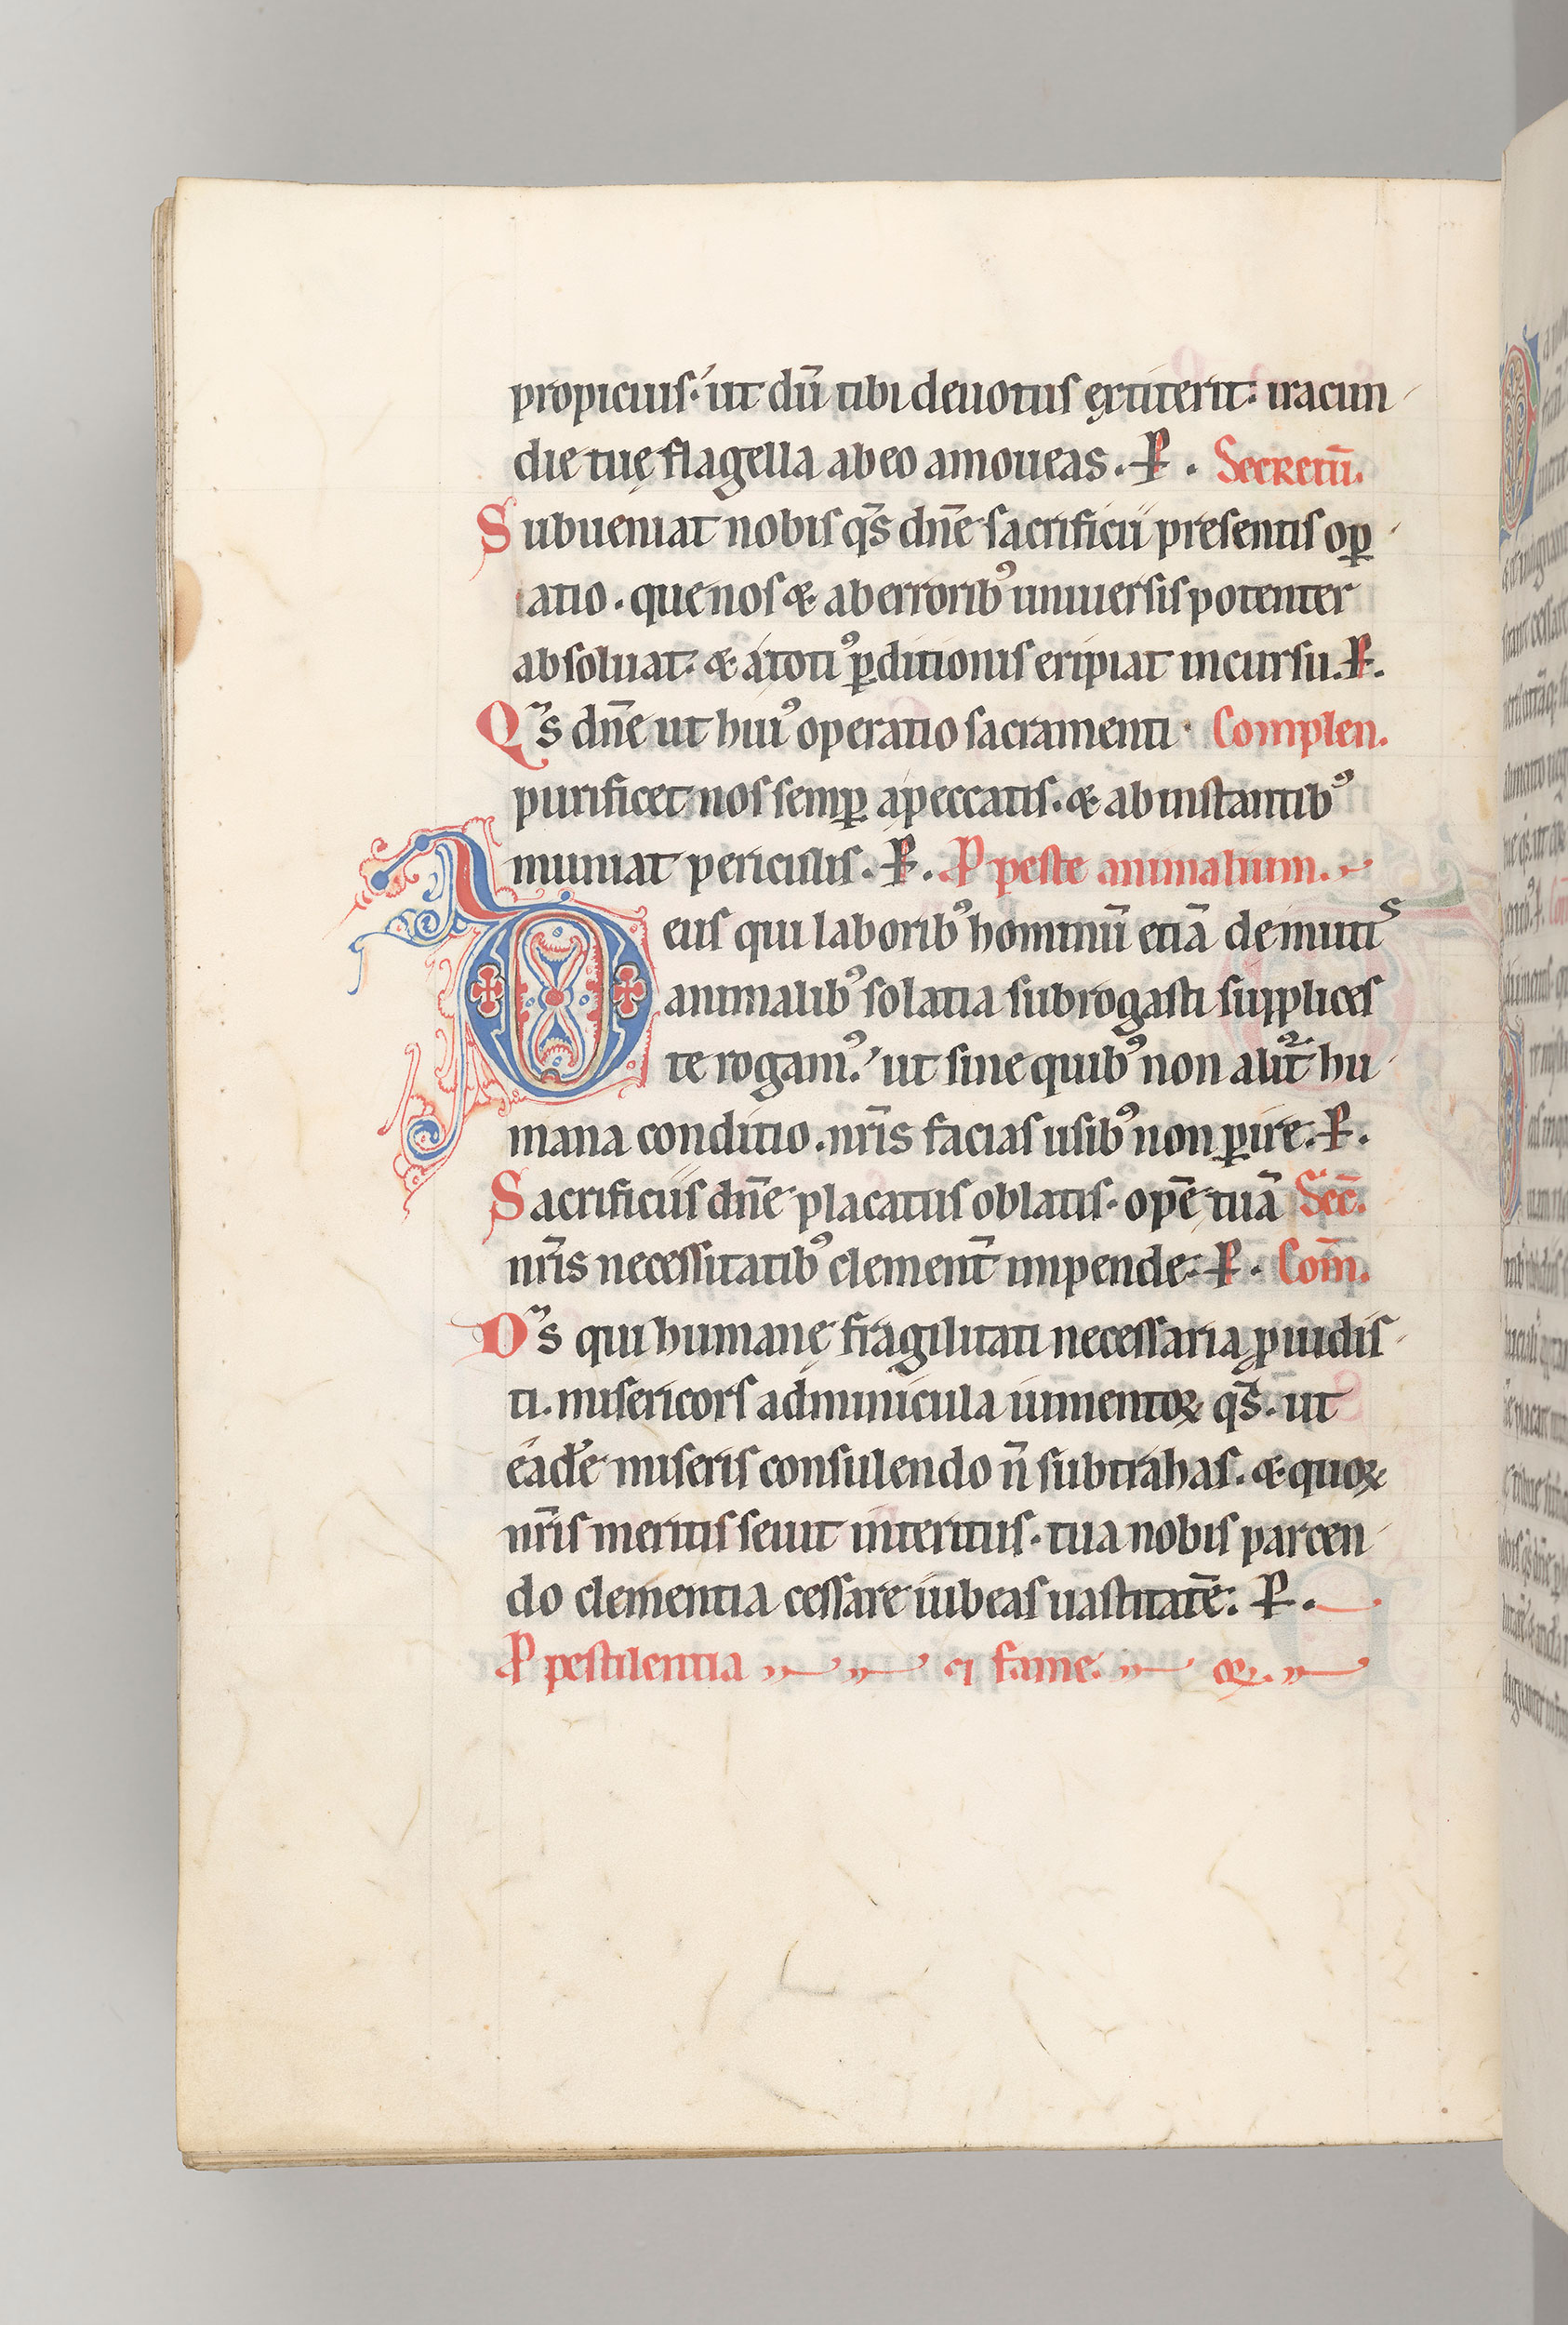 propicius. ut dū tibi deuotus extiterit: iracun
die tuę flagella ab eo amoueas. P. Secretū.
Subueniat nobis qs̄ dn̄e sacrificii presentis oꝑ
atio. que nos & ab erroribꝰ uniuersis potenter
absoluat: & a totiꝰ ꝑditionis eripiat incursu. P.
Qs̄ dn̄e ut huiꝰ operatio sacramenti Complen.
purificet nos semꝑ a peccatis. & ab instantibꝰ
muniat periculis. P. P peste animalium.
Deus qui laboribꝰ hominū etiā de mutis
animalibꝰ solatia subrogasti supplices
te rogamꝰ. ut sine quibꝰ non alit᷑ hu
mana conditio. nr̄is facias usibꝰ non ꝑire. P.
Sacrificiis dn̄e placatus oblatis. opē tuā Sec̄.
nr̄is necessitatibꝰ clement̄ impende. P. Com̄.
Ds̄ qui humanę fragilitati necessaria ꝓuidis
ti. misericors adminicula iumentoꝝ qs̄. ut
eadē miseris consulendo n̄ subtrahas. & quoꝝ
nr̄is meritis seuit interitus. tua nobis parcen
do clementia cessare iubeas uastitatē. P.
P pestilentia et fame. oꝝ.